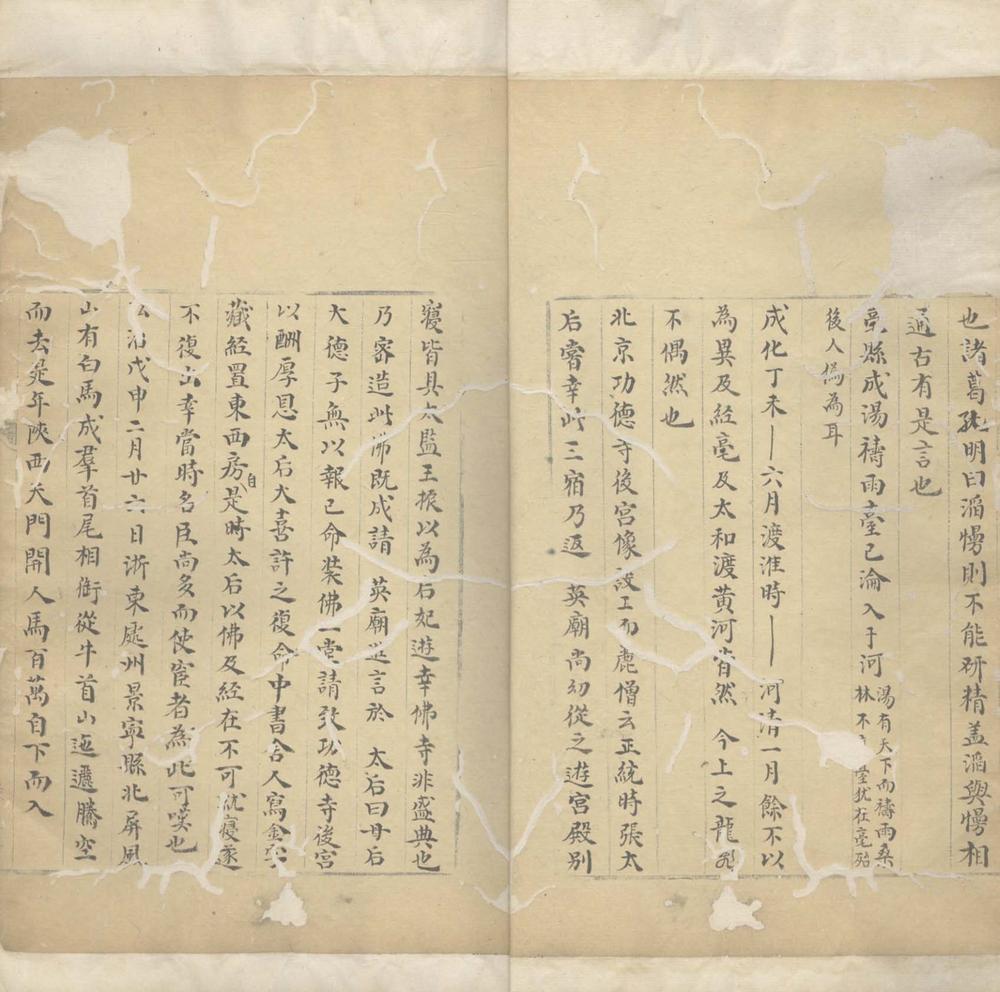 也諸葛孔明曰滔慢則不能研精盖滔與慢相
通古有是言也
亳縣成湯禱雨臺已淪入于河湯有天下而禱雨桑
林不臺犹在亳殆
後人偽為耳
成化丁未——六月渡淮時——河清一月餘不以
為異及経亳及太和渡黄河皆然 今上之龍飛
不偶然也
北京功德寺後宮像設工而麗僧云正統時張太
后嘗幸此三宿乃返 英廟尚幼從之遊宮殿別
寝皆具太監王振以為后妃遊幸佛寺非盛典也
乃密造此佛既成請 英廟進言於 太后曰母后
大德子無以報已命装佛一堂請致功德寺後宮
以酬厚恩太后大喜許之復命中書舎人寫金字
藏経置東西房自是時太后以佛及経在不可就寝遂
不復出幸當時名臣尚多而使宦者為此可嘆也
弘治戊申二月廿六日浙東處州景寧縣北屏風
山有白馬成羣首尾相銜從牛首山迤邐騰空
而去是年陝西天門開人馬百萬自下而入